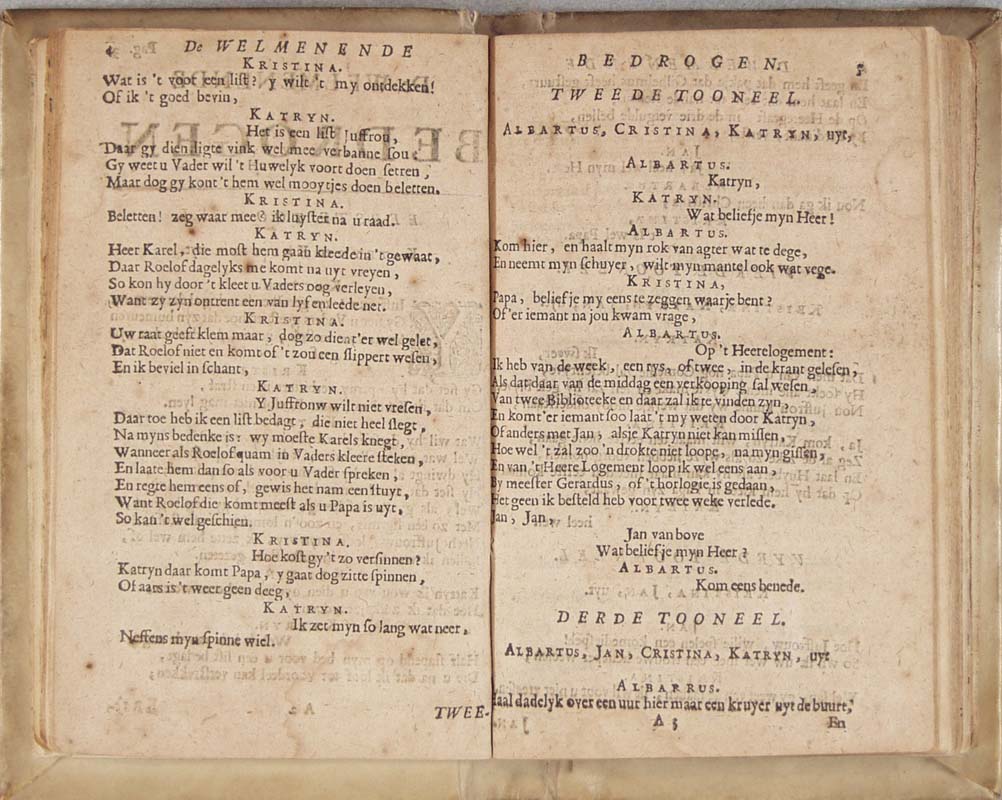 4 De WELMENENDE
KRISTINA.
Wat is 't voor een list? y wilt 't my ontdekken!
Of ik 't goed bevin,
KATRYN.
Het is een list Juffrou,
Daar gy dien ligte vink wel mee verbanne sou:
Gy weet u Vader wil 't Huwelyk voort doen setten,
Maar dog gy kont 't hem wel mooytjes doen beletten.
KRISTINA.
Beletten! zeg waar mee? ik luyster na u raad.
KATRYN.
Heer Karel, die most hem gaan kleede in 't gewaat,
Daar Roelof dagelyks me komt na uyt vreyen,
So kon hy door 't kleet u Vaders oog verleyen,
Want zy zyn ontrent een van lyf en leede net.
KRISTINA.
Uw raat geeft klem maar, dog zo dient'er wel gelet,
Dat Roelof niet en komt of 't zou een slippert wesen,
En ik beviel in schant,
KATRYN.
Y Juffronw wilt niet vresen,
Daar toe heb ik een list bedagt, die niet heel slegt,
Na myns bedenke is: wy moeste Karels knegt,
Wanneer als Roelof quam in Vaders kleere steken,
En laate hem dan so als voor u Vader spreken;
En regte hem eens of, gewis het nam een stuyt,
Want Roelof die komt meest als u Papa is uyt,
So kan 't wel geschien.
KRISTINA.
Hoe kost gy 't zo versinnen?
Katryn daar komt Papa, y gaat dog zitte spinnen,
Of aars is 't weer geen deeg,
KATRYN.
Ik zet myn so lang wat neer,
Neffens myn spinne wiel.
TWEE-
BEDROGEN. 5
TWEEDE TOONEEL.
ALBARTUS, CRISTINA, KATRYN, uyt,
ALBARTUS.
Katryn,
KATRYN.
Wat beliefje myn Heer!
ALBARTUS.
Kom hier, en haalt myn rok van agter wat te dege,
En neemt myn schuyer, wilt myn mantel ook wat vege.
KRISTINA,
Papa, belief je my eens te zeggen waar je bent?
Of'er iemant na jou kwam vrage,
ALBARTUS.
Op 't Heerelogement:
Ik heb van de week, een rys, of twee, in de krant gelesen,
Als dat daar van de middag een verkooping sal wesen,
Van twee Biblioteeke en daar zal ik te vinden zyn,
En komt'er iemant soo laat 't my weten door Katryn,
Of anders met Jan, alsje Katryn niet kan missen,
Hoe wel 't zal zoo 'n drokte niet loope, na myn gissen,
En van 't Heere Logement loop ik wel eens aan,
By meester Gerardus, of 't horlogie is gedaan,
Het geen ik besteld heb voor twee weke verlede.
Jan, Jan,
Jan van bove
Wat belief je myn Heer?
ALBARTUS.
Kom eens benede.
DERDE TOONEEL.
ALBARTUS, JAN, CRISTINA, KATRYN, uyt
ALBARRUS.
Haal dadelyk over een uur hier maar een kruyer uyt de buurt,
A 3 En